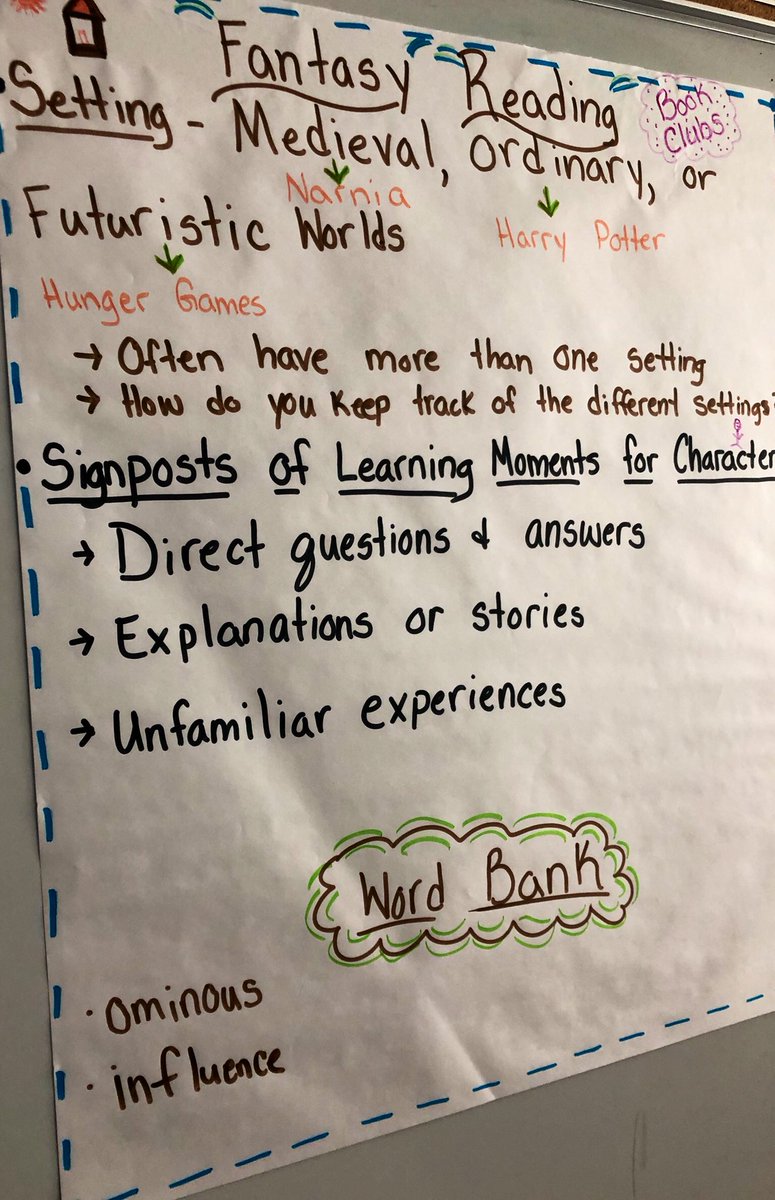 Fantasy Reading
Book
Clubs
• Setting - Medieval, ordinary, or
Narnia
Harry Potter
Futuristic Worlds
Hunger Games
→ Often have more than one setting
→ How do you keep track of the different settings?
• Signposts of Learning Moments for Character
→ Direct questions & answers
→ Explanations or stories
→ Unfamiliar experiences
Word Bank
· ominous
· influence